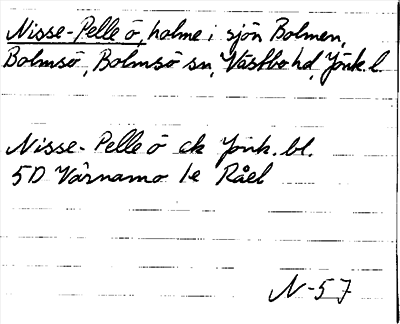 Nisse-Pelle ö, holme i sjön Bolmen,
Bolmsö, Bolmsö sn, Västbo hd, Jönk.l.
Nisse-Pelle ö ek Jönk. bl.
5D Värnamo 1e Råel
N-57